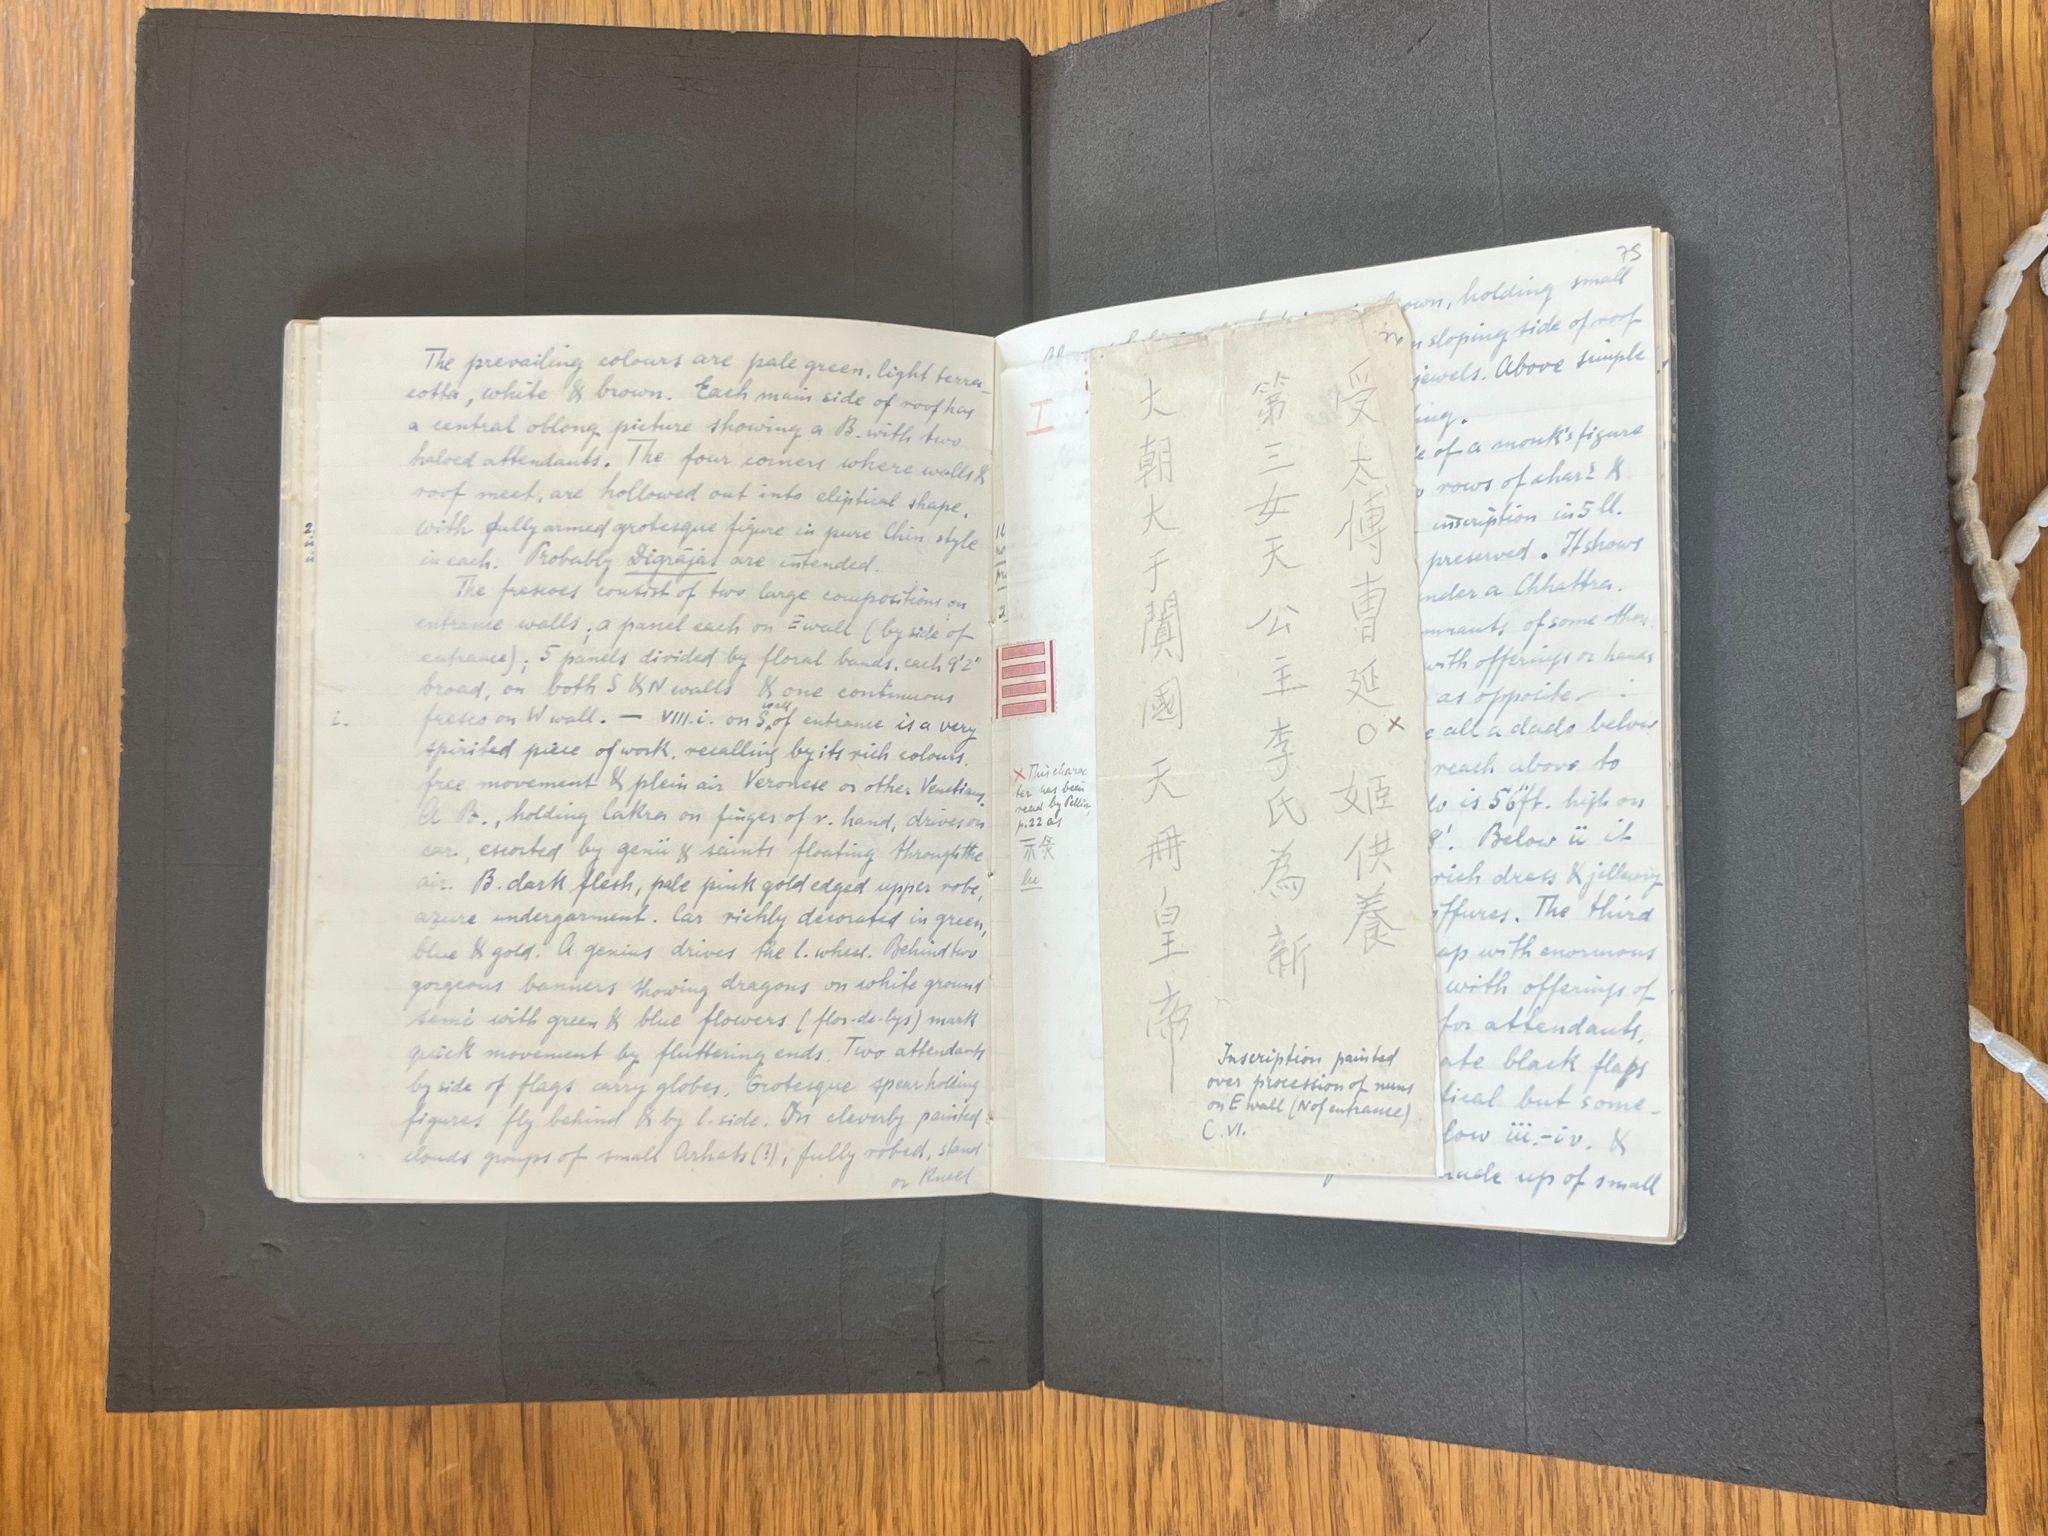 The prevailing colours are pale green, light terra-
cotta, white & brown. Each main side of roof has
a central oblong picture showing a B. with two
haloed attendants. The four corners where walls &
roof meet, are hollowed out into eliptical shape,
with fully armed grotesque figure in pure Chin style
in each. Probably Digrājas are intended.
The frescoes consist of two large compositions on
entrance walls; a panel each on E wall (by side of
entrance); 5 panels divided by floral bands, each 9'2"
broad, on both S & N walls & one continuous
i.
fresco on W wall. — VIII.i. on S. wall of entrance is a very
spirited piece of work, recalling by its rich colours,
free movement & plein air Veronese or other Venetians.
A B., holding Cakra on finger of r. hand, drives on
car, escorted by genii & saints floating through the
air. B. dark flesh, pale pink gold edged upper robe,
azure undergarment. Car richly decorated in green,
blue & gold. A genius drives the l. wheel. Behind two
gorgeous banners showing dragons on white ground
semé with green & blue flowers (flor-de-lys) mark
quick movement by fluttering ends. Two attendants
by side of flags carry globes. Grotesque spear holding
figures fly behind & by l. side. On cleverly painted
clouds groups of small Arhats (?), fully robed, stand
or kneel
I
× This charac
ter has been
read by Pelliot
p. 22 as
大朝大于闐國天冊皇帝
第三女天公主李氏為新
受太傅曹延○×姬供養
Inscription painted
over procession of nuns
on E wall (N of entrance)
C. VI.
75
own, holding small
sloping side of roof
jewels. Above simple
of a monk's figure
rows of char. &
inscription in 5 ll.
preserved. It shows
under a Chhattra.
remnants of some other
with offerings or hands
as opposite
all a dado below
reach above to
is 5'6" ft. high on
8'. Below ii it
rich dress & jillewry
The third
with enormous
with offerings of
for attendants,
black flaps
but some-
iii.-iv. &
made up of small